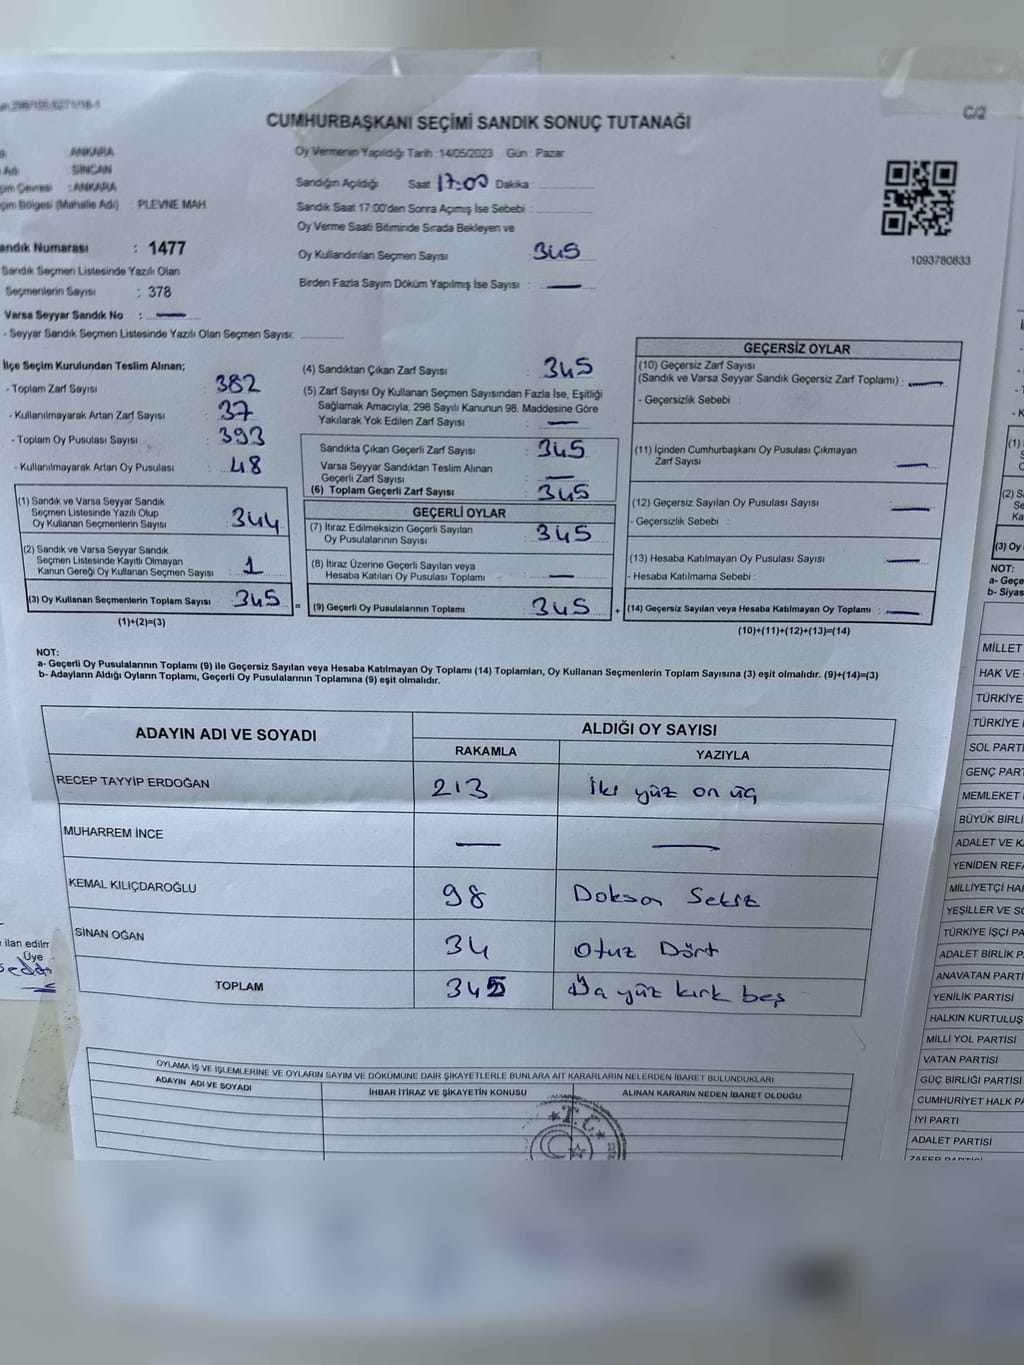 CUMHURBAŞKANI SEÇİMİ SANDIK SONUÇ TUTANAĞI
C/2
ANKARA
SİNCAN
: ANKARA
(Mahalle Adı) : PLEVNE MAH
Sandık Numarası : 1477
Sandık Seçmen Listesinde Yazılı Olan
Seçmenlerin Sayısı : 378
Varsa Seyyar Sandık No : —
- Seyyar Sandık Seçmen Listesinde Yazılı Olan Seçmen Sayısı:
Oy Vermenin Yapıldığı Tarih : 14/05/2023 Gün : Pazar
Sandığın Açıldığı Saat 17:00 Dakika :
Sandık Saat 17:00'den Sonra Açımış İse Sebebi :
Oy Verme Saati Bitiminde Sırada Bekleyen ve
Oy Kullandırılan Seçmen Sayısı : 345
Birden Fazla Sayım Döküm Yapılmış İse Sayısı : —
1093780833
İlçe Seçim Kurulundan Teslim Alınan;
- Toplam Zarf Sayısı : 382
- Kullanılmayarak Artan Zarf Sayısı : 37
- Toplam Oy Pusulası Sayısı : 393
- Kullanılmayarak Artan Oy Pusulası : 48
(1) Sandık ve Varsa Seyyar Sandık
Seçmen Listesinde Yazılı Olup
Oy Kullanan Seçmenlerin Sayısı : 344
(2) Sandık ve Varsa Seyyar Sandık
Seçmen Listesinde Kayıtlı Olmayan
Kanun Gereği Oy Kullanan Seçmen Sayısı : 1
(3) Oy Kullanan Seçmenlerin Toplam Sayısı : 345
(1)+(2)=(3)
(4) Sandıktan Çıkan Zarf Sayısı : 345
(5) Zarf Sayısı Oy Kullanan Seçmen Sayısından Fazla İse, Eşitliği
Sağlamak Amacıyla, 298 Sayılı Kanunun 98. Maddesine Göre
Yakılarak Yok Edilen Zarf Sayısı : —
Sandıkta Çıkan Geçerli Zarf Sayısı : 345
Varsa Seyyar Sandıktan Teslim Alınan
Geçerli Zarf Sayısı : —
(6) Toplam Geçerli Zarf Sayısı : 345
GEÇERLİ OYLAR
(7) İtiraz Edilmeksizin Geçerli Sayılan
Oy Pusulalarının Sayısı : 345
(8) İtiraz Üzerine Geçerli Sayılan veya
Hesaba Katılan Oy Pusulası Toplamı : —
= (9) Geçerli Oy Pusulalarının Toplamı : 345
GEÇERSİZ OYLAR
(10) Geçersiz Zarf Sayısı
(Sandık ve Varsa Seyyar Sandık Geçersiz Zarf Toplamı) : —
- Geçersizlik Sebebi :
(11) İçinden Cumhurbaşkanı Oy Pusulası Çıkmayan
Zarf Sayısı : —
(12) Geçersiz Sayılan Oy Pusulası Sayısı : —
- Geçersizlik Sebebi :
(13) Hesaba Katılmayan Oy Pusulası Sayısı : —
- Hesaba Katılmama Sebebi :
+ (14) Geçersiz Sayılan veya Hesaba Katılmayan Oy Toplamı : —
(10)+(11)+(12)+(13)=(14)
NOT:
a- Geçerli Oy Pusulalarının Toplamı (9) ile Geçersiz Sayılan veya Hesaba Katılmayan Oy Toplamı (14) Toplamları, Oy Kullanan Seçmenlerin Toplam Sayısına (3) eşit olmalıdır. (9)+(14)=(3)
b- Adayların Aldığı Oyların Toplamı, Geçerli Oy Pusulalarının Toplamına (9) eşit olmalıdır.
ADAYIN ADI VE SOYADI
ALDIĞI OY SAYISI
RAKAMLA YAZIYLA
RECEP TAYYİP ERDOĞAN 213 İki yüz on üç
MUHARREM İNCE — —
KEMAL KILIÇDAROĞLU 98 Doksan Sekiz
SİNAN OĞAN 34 Otuz Dört
TOPLAM 345 yüz kırk beş
OYLAMA İŞ VE İŞLEMLERİNE VE OYLARIN SAYIM VE DÖKÜMÜNE DAİR ŞİKAYETLERLE BUNLARA AİT KARARLARIN NELERDEN İBARET BULUNDUKLARI
ADAYIN ADI VE SOYADI İHBAR İTİRAZ VE ŞİKAYETİN KONUSU ALINAN KARARIN NEDEN İBARET OLDUĞU
T.C.
ilan edilm
Üye
(1)
(3) Oy
NOT:
a- Geçe
b- Siyas
MİLLET
HAK VE
TÜRKİYE
TÜRKİYE
SOL PARTİ
GENÇ PAR
MEMLEKET
BÜYÜK BİRLİ
ADALET VE K
YENİDEN REFA
MİLLİYETÇİ HA
YEŞİLLER VE SO
TÜRKİYE İŞÇİ PA
ADALET BİRLİK P
ANAVATAN PARTİ
YENİLİK PARTİSİ
HALKIN KURTULUŞ
MİLLİ YOL PARTİSİ
VATAN PARTİSİ
GÜÇ BİRLİĞİ PARTİSİ
CUMHURİYET HALK PA
İYİ PARTİ
ADALET PARTİSİ
ZAFER PARTİSİ